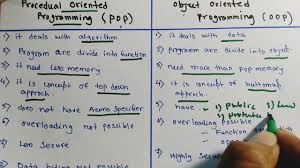 Procedual Oriented
Programming (POP)
1) it deals with algorithm
2) Program are divide into function
3) it need less memory
4) it is concept of top down
aproach.
5) does not have Access Specifier
6) overloading not possible
Less secure.
Object Oriented
Programming (OOP)
1. it deals with data.
2. Program are divide into object
3) need more than pop memory
4) it is concept of buttomup
aproach.
5) have - 1) Public 2)
6) overloading possible
- Function
- oper
7) Highly Secu